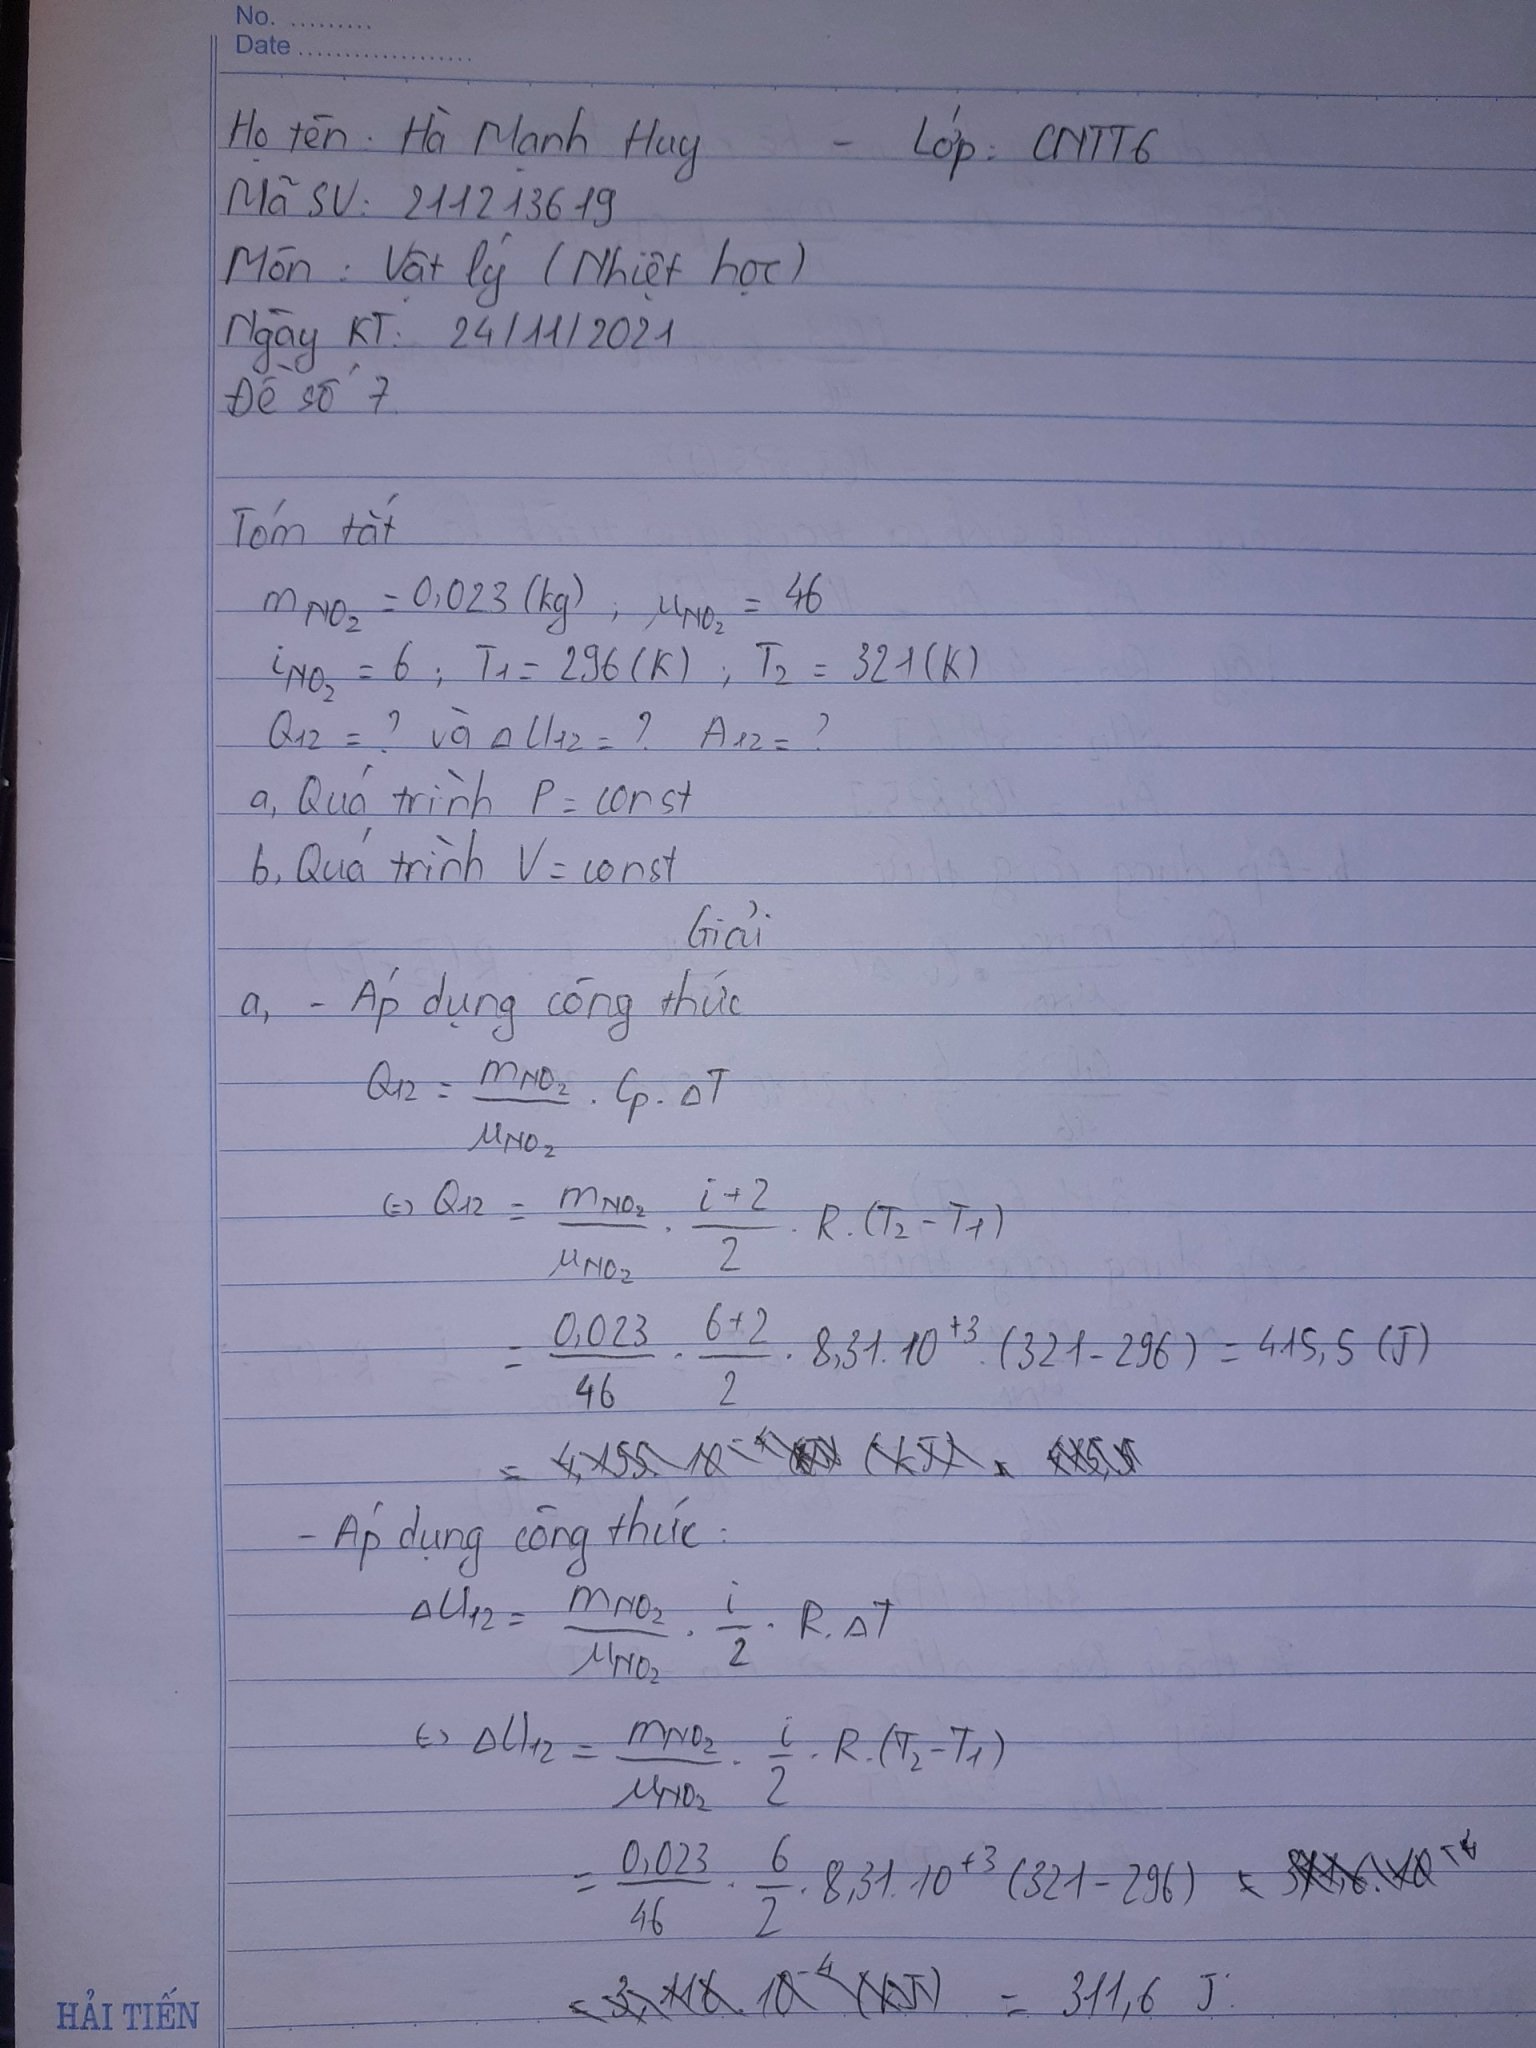 No. .........
Date ...................
Họ tên: Hà Mạnh Huy - Lớp: CNTT6
Mã SV: 211213619
Môn: Vật lý (Nhiệt học)
Ngày KT: 24/11/2021
Đề số 7
Tóm tắt
m_NO₂ = 0,023 (kg) ; μ_NO₂ = 46
i_NO₂ = 6 ; T₁ = 296 (K) ; T₂ = 321 (K)
Q₁₂ = ? và ΔU₁₂ = ? A₁₂ = ?
a, Quá trình P = const
b, Quá trình V = const
Giải
a, - Áp dụng công thức
Q₁₂ = m_NO₂/μ_NO₂ . Cp . ΔT
⇔ Q₁₂ = m_NO₂/μ_NO₂ . (i+2)/2 . R.(T₂ - T₁)
= 0,023/46 . (6+2)/2 . 8,31.10⁺³.(321 - 296) = 415,5 (J)
=
- Áp dụng công thức:
ΔU₁₂ = m_NO₂/μ_NO₂ . i/2 . R.ΔT
⇔ ΔU₁₂ = m_NO₂/μ_NO₂ . i/2 . R.(T₂ - T₁)
= 0,023/46 . 6/2 . 8,31.10⁺³ (321 - 296)
= 311,6 J
HẢI TIẾN